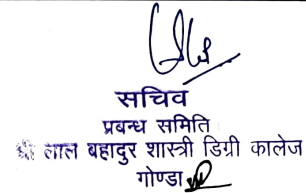 सचिव
प्रबन्ध समिति
श्री लाल बहादुर शास्त्री डिग्री कालेज
गोण्डा